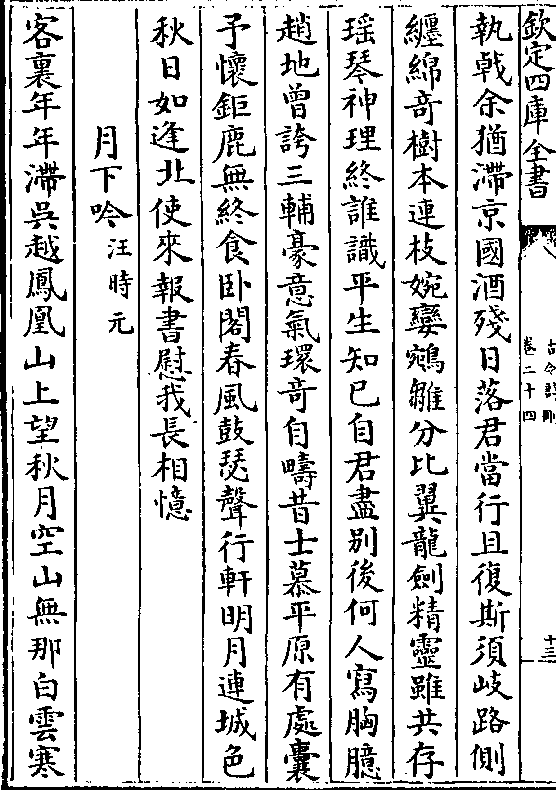 欽定四庫全書
古今詩刪
卷二十四
十三
執戟余猶滯京國酒殘日落君當行且復斯須岐路側
纏綿奇樹本連枝婉孌鵷雛分比翼龍劍精靈雖共存
瑶琴神理終誰識平生知已自君盡别後何人寫胸臆
趙地曾誇三輔豪意氣環奇自疇昔士慕平原有處囊
予懷鉅鹿無終食卧閣春風鼓瑟聲行軒明月連城色
秋日如逢北使來報書慰我長相憶
月下吟 汪時元
客裏年年滯吳越鳳凰山上望秋月空山無那白雲寒